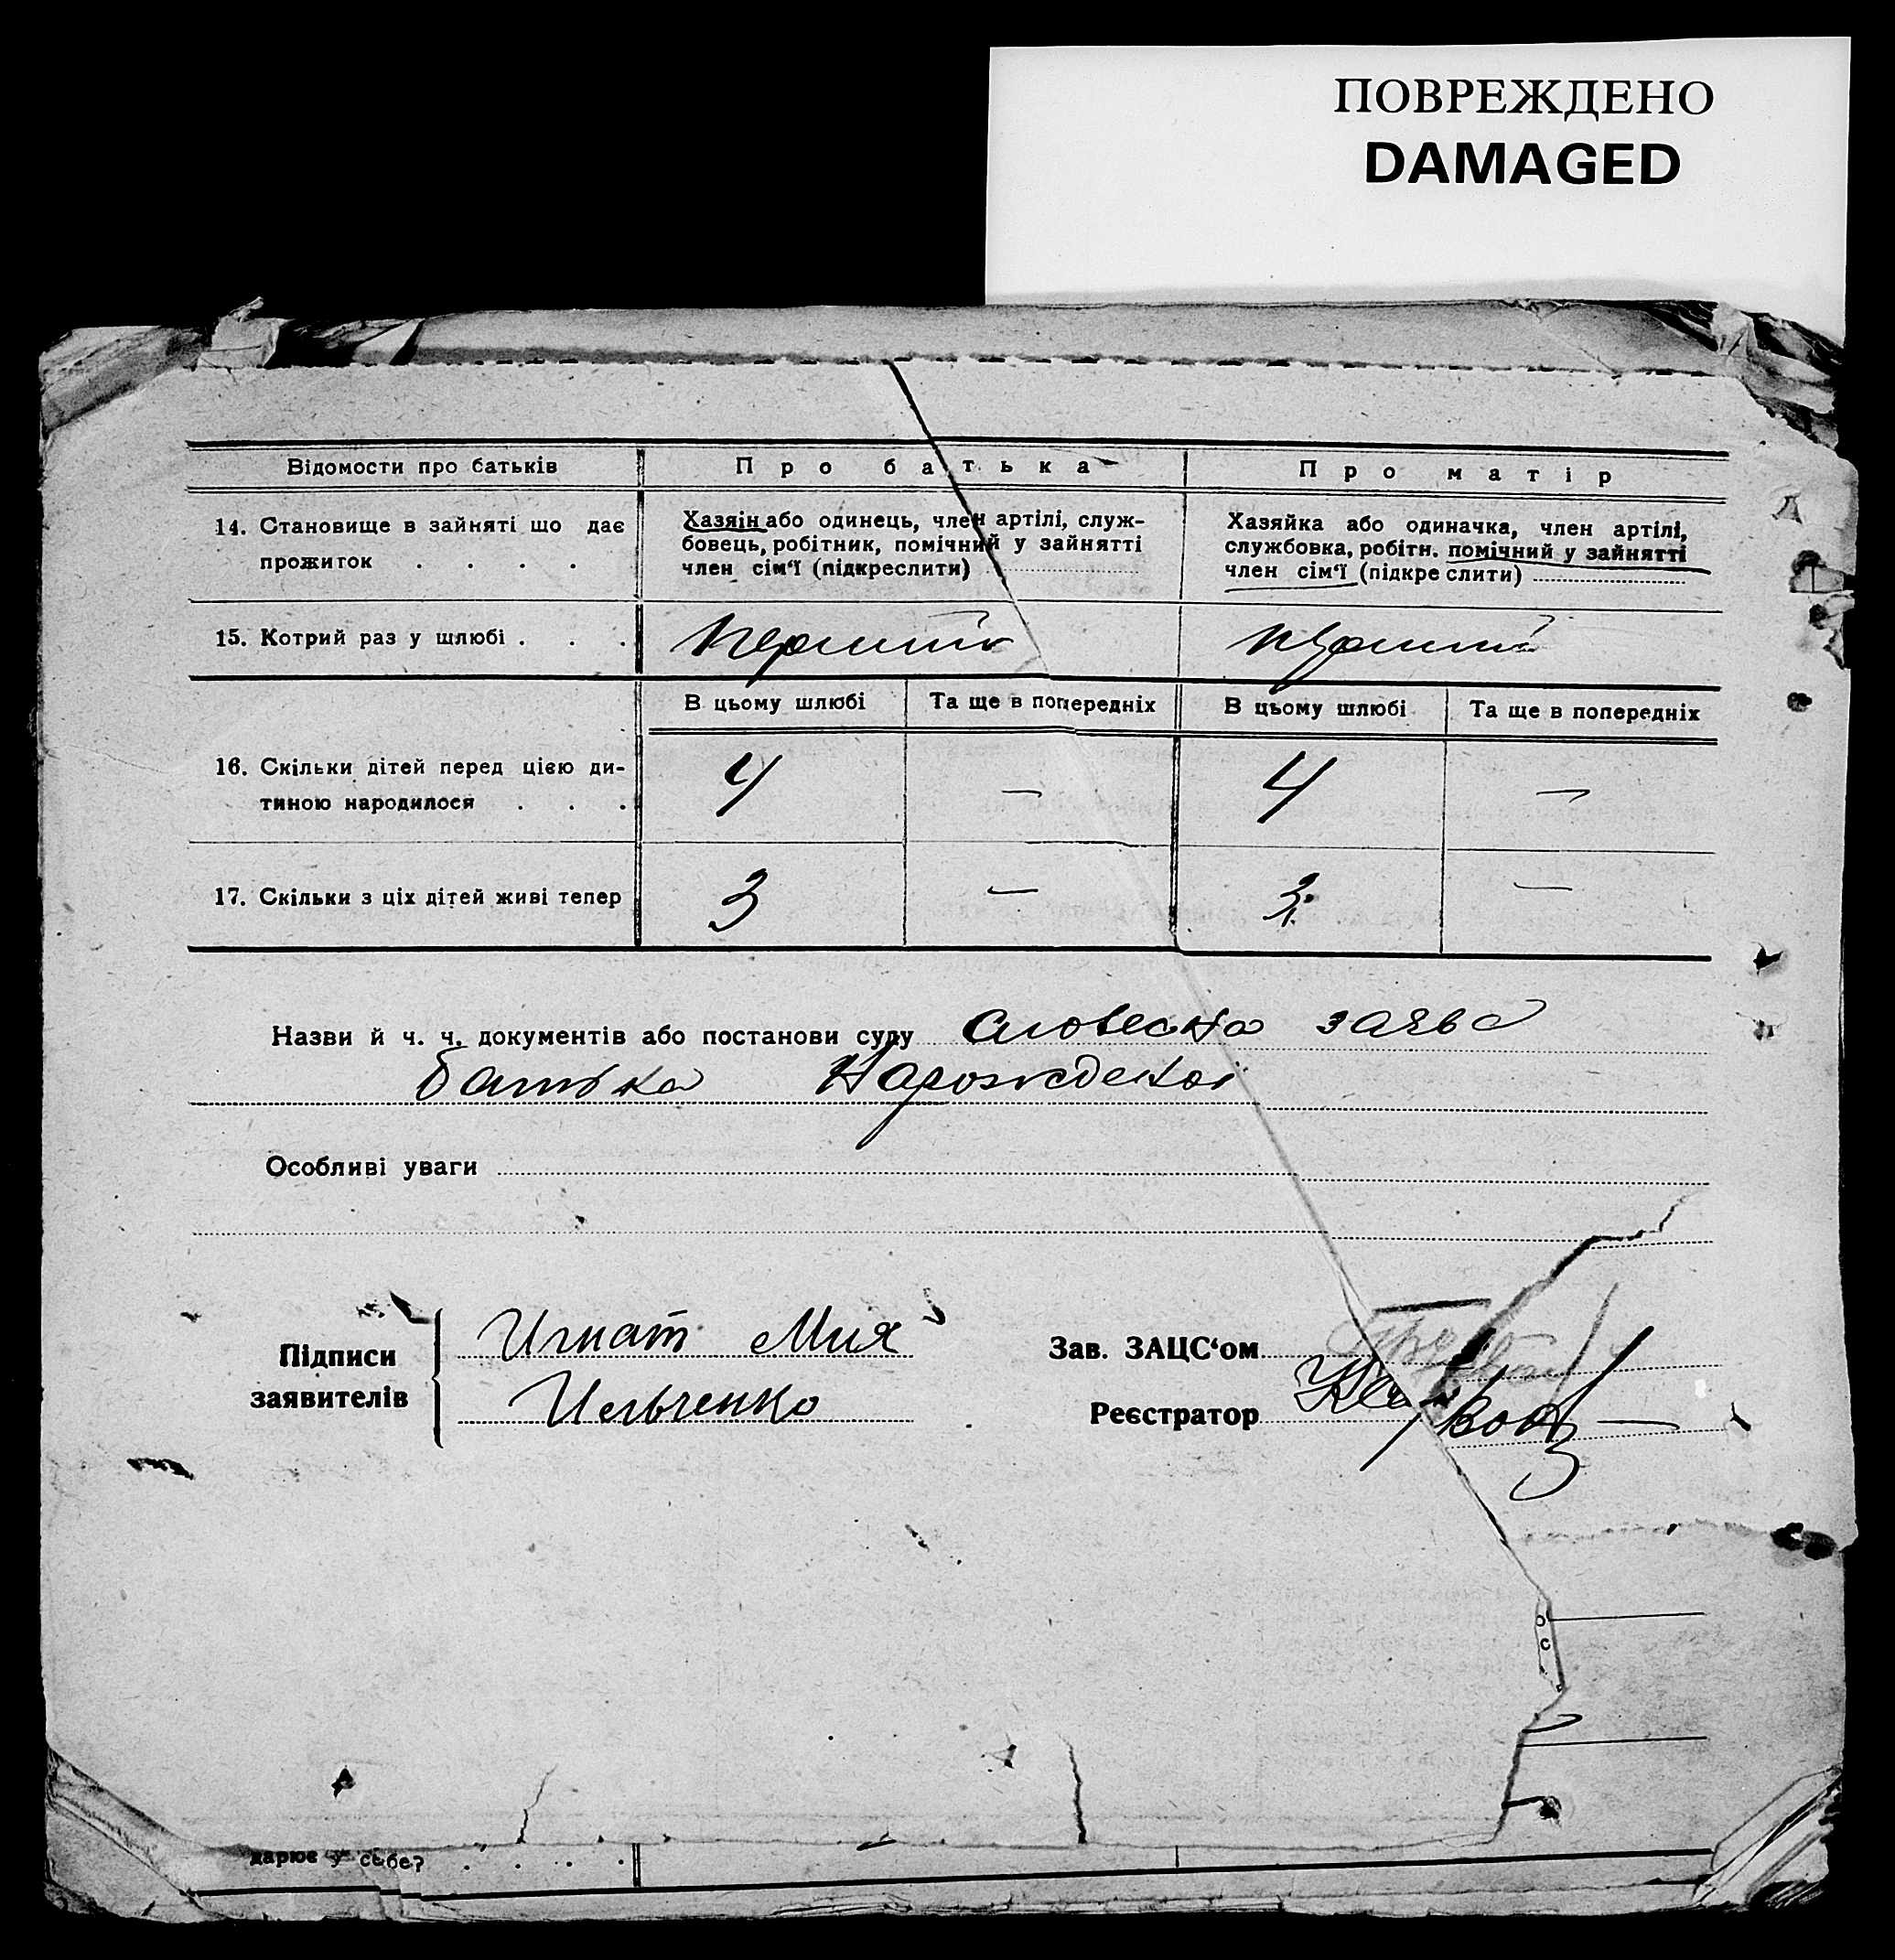 ПОВРЕЖДЕНО
DAMAGED
Відомости про батьків
Про батька
Про матір
14. Становище в зайняті що дає
прожиток . . . .
Хазяін або одинець, член артілі, служ-
бовець, робітник, помічний у зайнятті
член сім‘ї (підкреслити)
Хазяйка або одиначка, член артілі,
службовка, робітн. помічний у зайнятті
член сім‘ї (підкреслити)
15. Котрий раз у шлюбі . . .
Перший
Перший
В цьому шлюбі
Та ще в попередніх
В цьому шлюбі
Та ще в попередніх
16. Скільки дітей перед цією ди-
тиною народилося . . .
4 — 4 —
17. Скільки з ціх дітей живі тепер
3 — 3 —
Назви й ч. ч. документів або постанови суду словесна заява
батька
Особливі уваги
Підписи
заявителів
Игнат Мих
Ильченко
Зав. ЗАЦС‘ом
Реєстратор
о
с
дарює у себе? . . . .